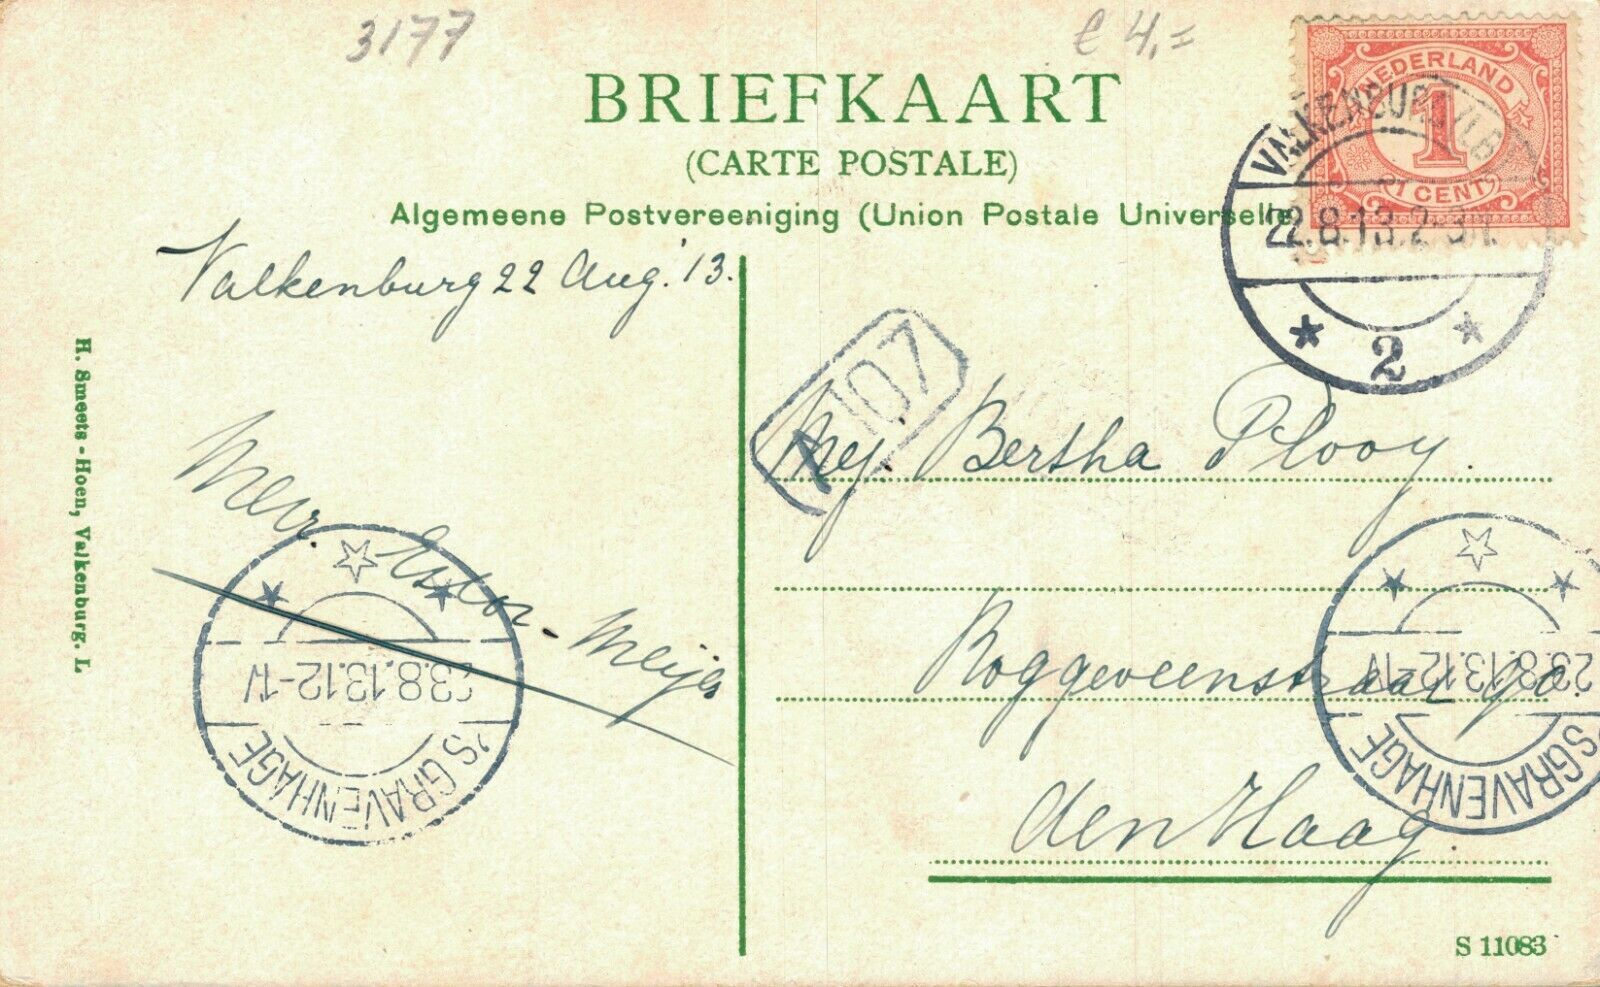 3177
€ 4,=
BRIEFKAART
(CARTE POSTALE)
Algemeene Postvereeniging (Union Postale Universelle)
NEDERLAND
1
1 CENT
VALKENBURG (LB
22.8.13.2-3N.
2
Valkenburg 22 Aug. '13.
107
Mej. Bertha Plooy.
Mevr. Meijer
Roggeveenstraat
den Haag.
23.8.13.12-1V
'S GRAVENHAGE
23.8.13.12-1V
'S GRAVENHAGE
H. Smeets - Hoen, Valkenburg. L
S 11083